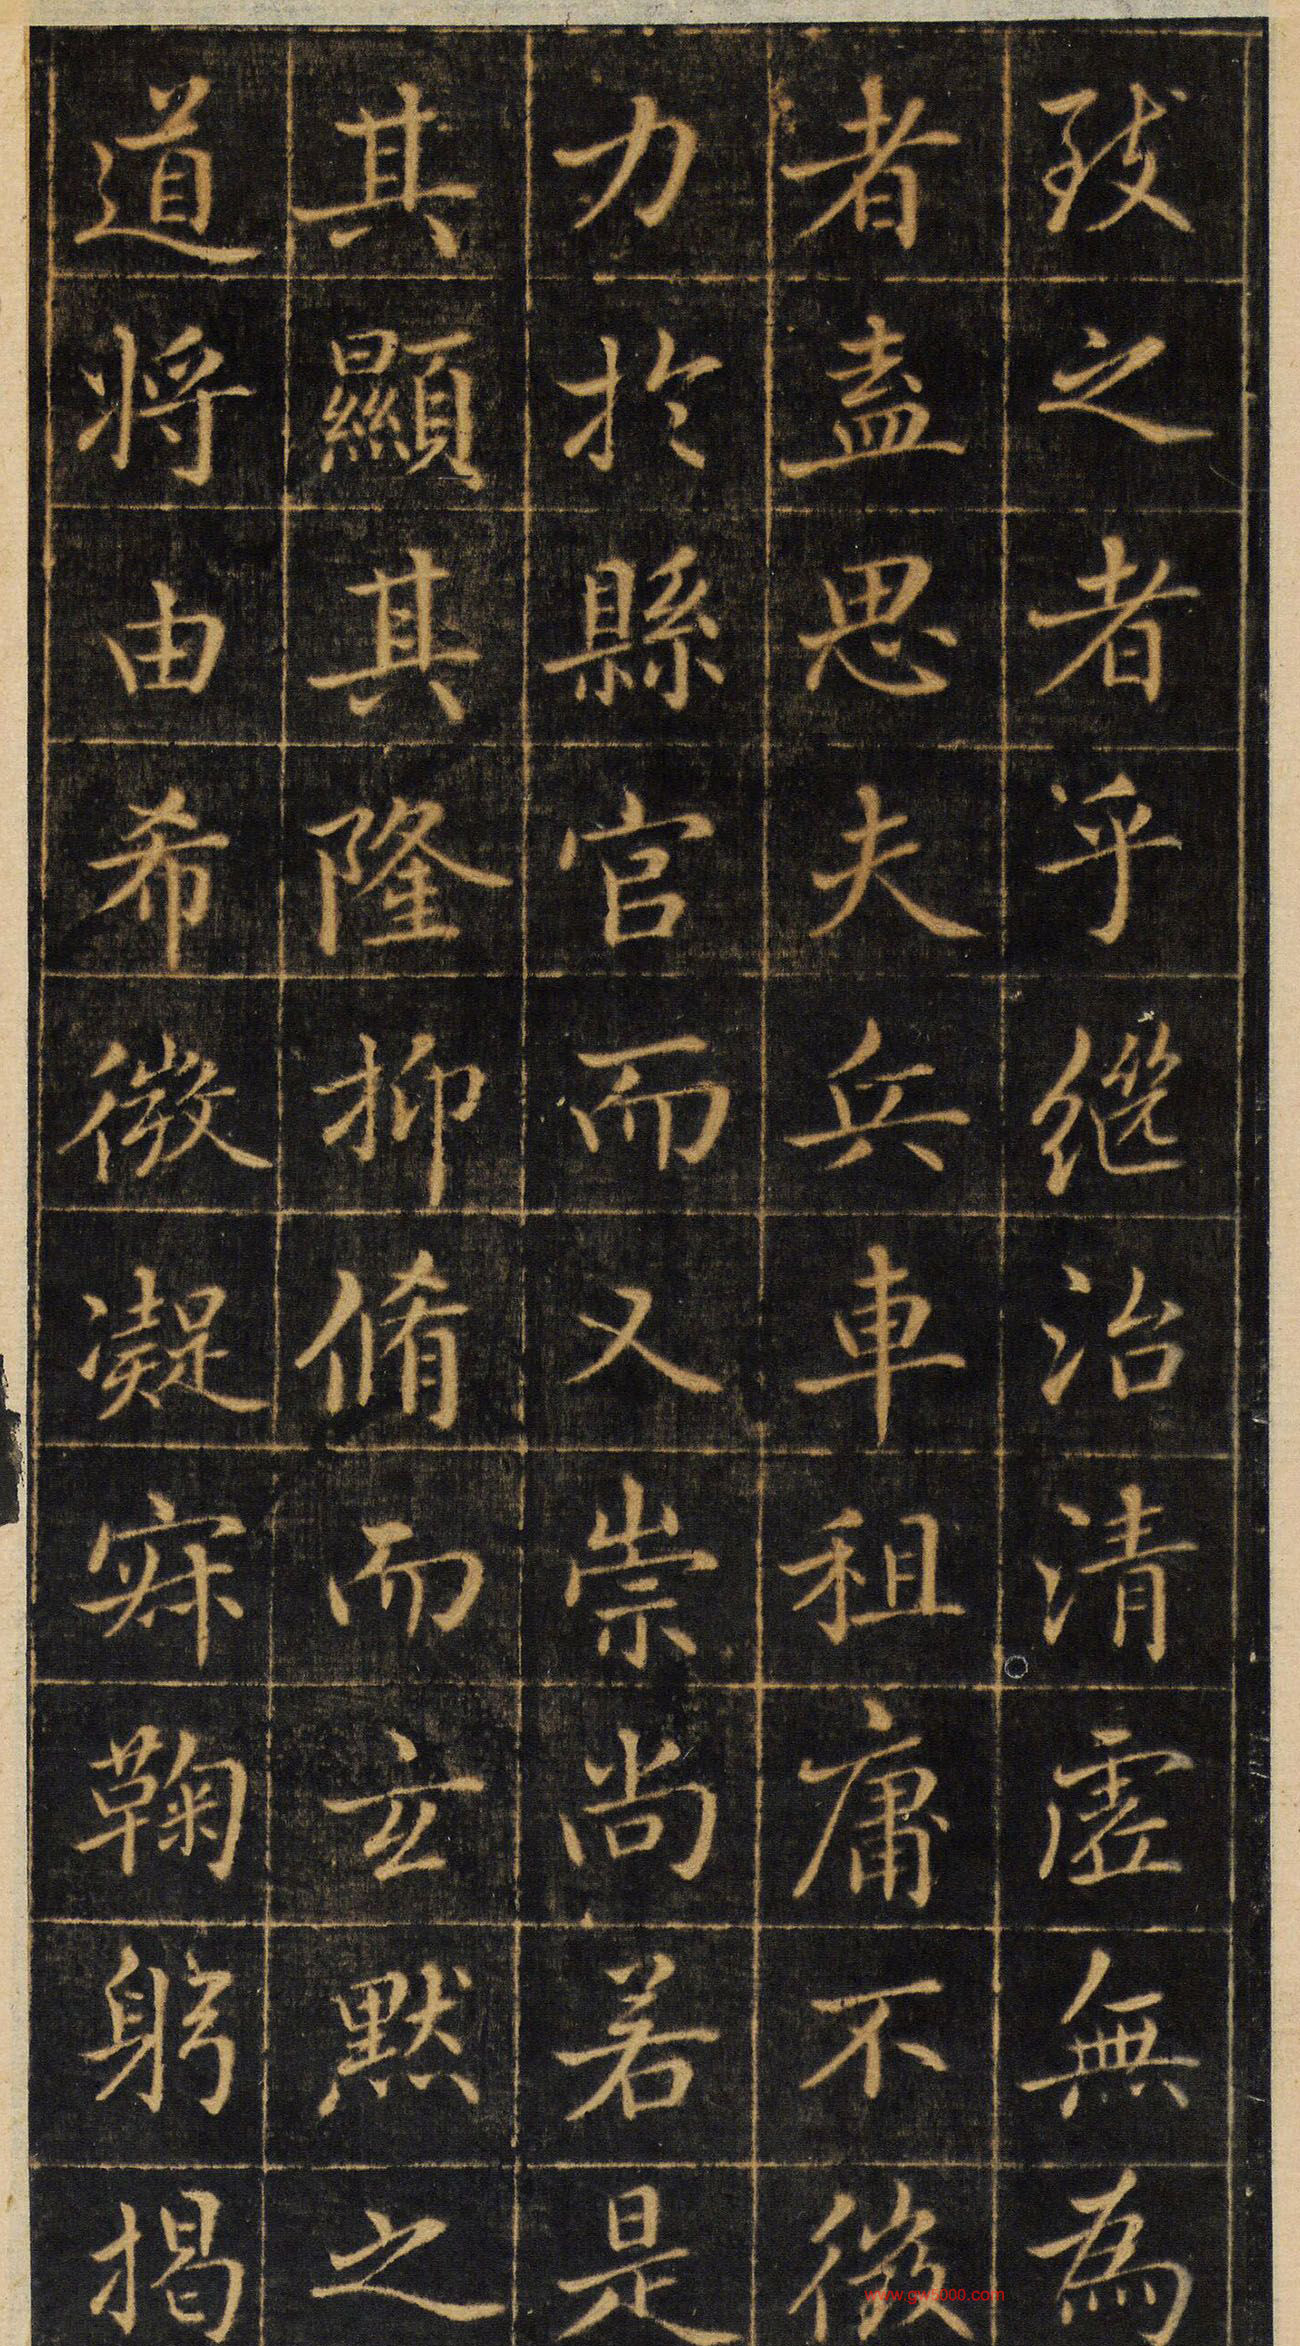 致之者乎繼治清虛無為
者盍思夫兵車租庸不徵
力於縣官而又崇尚若是
其顯其隆抑脩而玄默之
道將由希微凝寂鞠躬揭
www.gws000.com